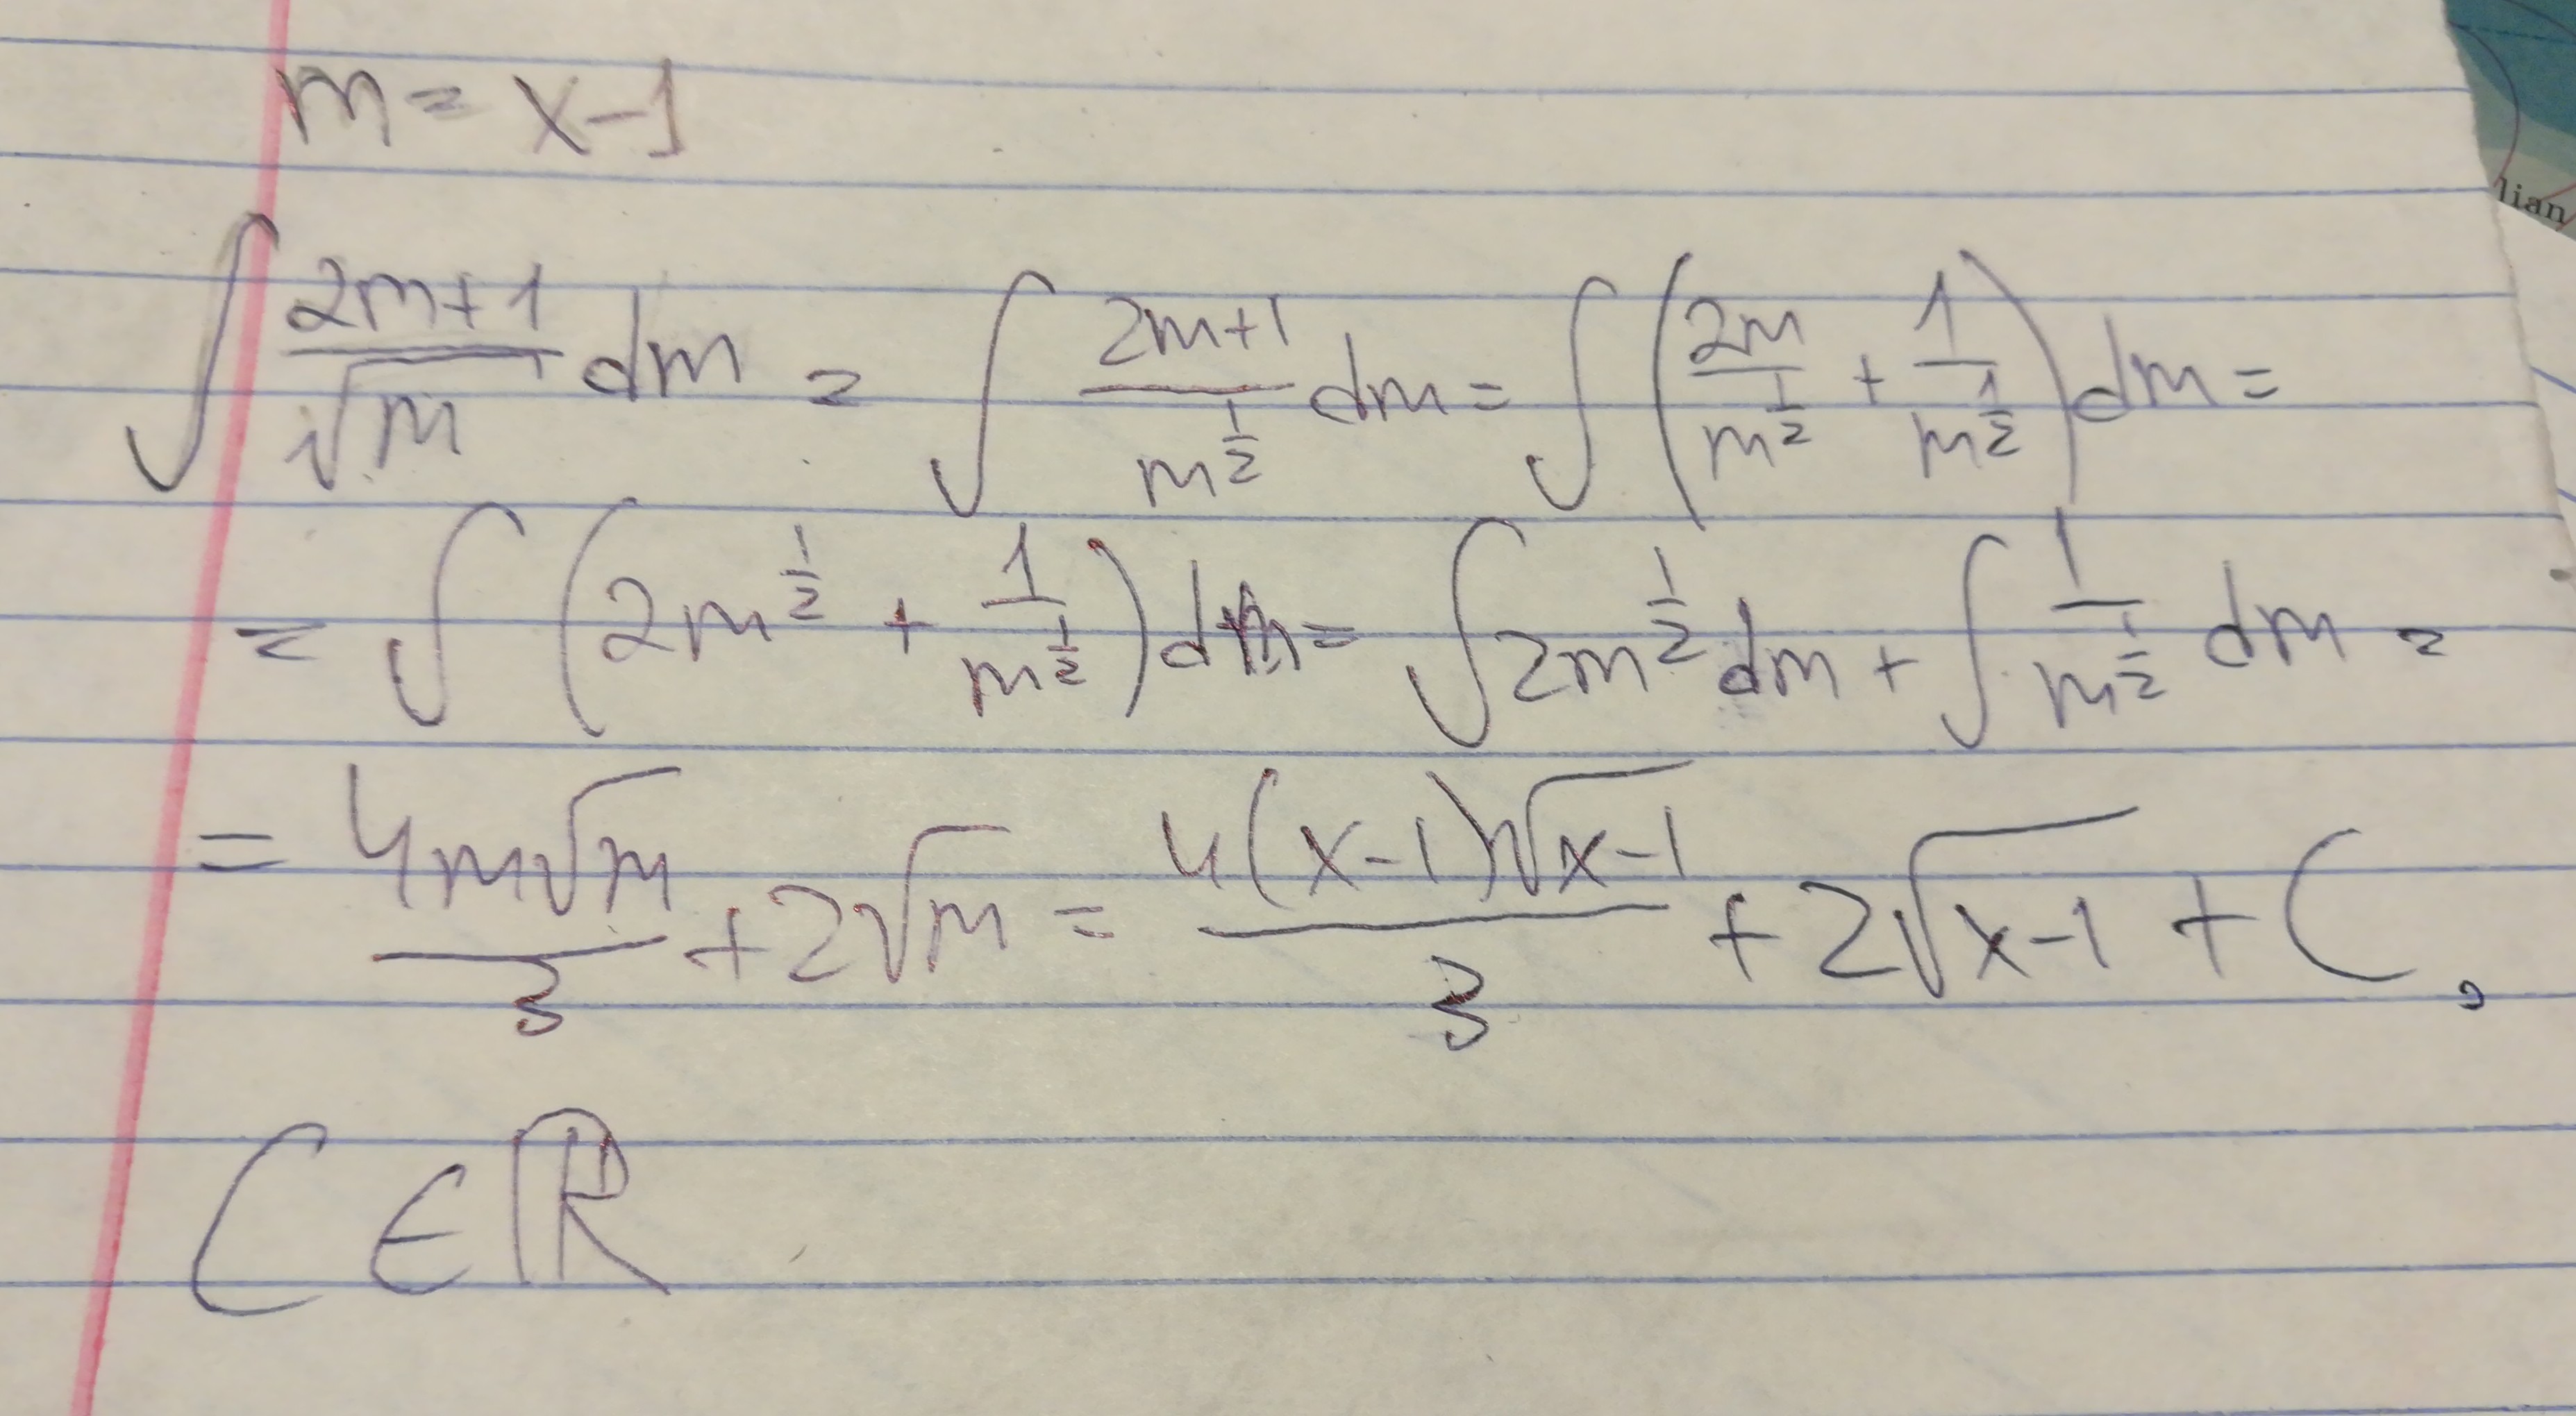 m = x-1
∫ (2m+1)/√m dm = ∫ (2m+1)/m^(1/2) dm = ∫ (2m/m^(1/2) + 1/m^(1/2)) dm =
= ∫ (2m^(1/2) + 1/m^(1/2)) dm = ∫ 2m^(1/2) dm + ∫ 1/m^(1/2) dm =
= 4m√m/3 + 2√m = 4(x-1)√(x-1)/3 + 2√(x-1) + C,
C ∈ ℝ
lian